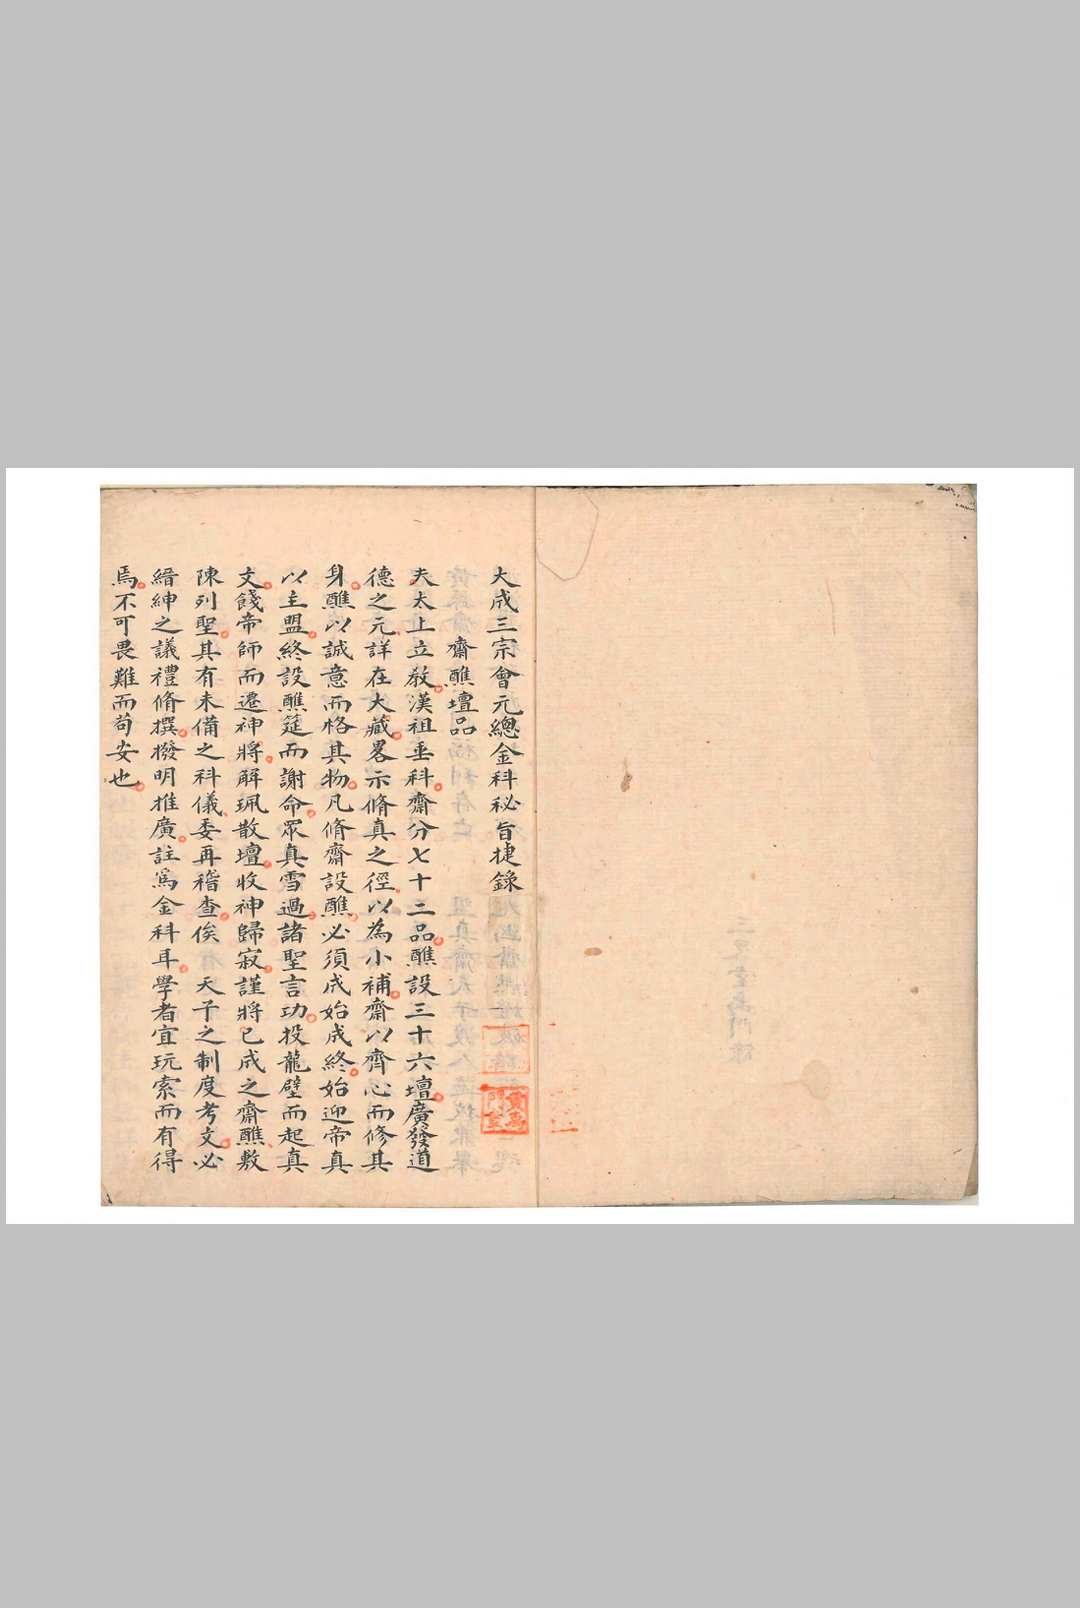 大成三宗會元總金科秘旨捷錄
齋醮壇品
夫太上立教漢祖垂科齋分七十二品醮設三十六壇廣發道
德之元詳在大藏畧示脩真之徑以為小補齋以齊心而修其
身醮以誠意而格其物凡脩齋設醮必須成始成終始迎帝真
以主盟終設醮筵而謝命眾真雪過諸聖言功投龍璧而起真
文餞帝師而遷神將解珮散壇收神歸寂謹將已成之齋醮敷
陳列聖其有未備之科儀委再稽查俟天子之制度考文必
縉紳之議禮脩撰撥明推廣註為金科耳學者宜玩索而有得
焉不可畏難而苟安也